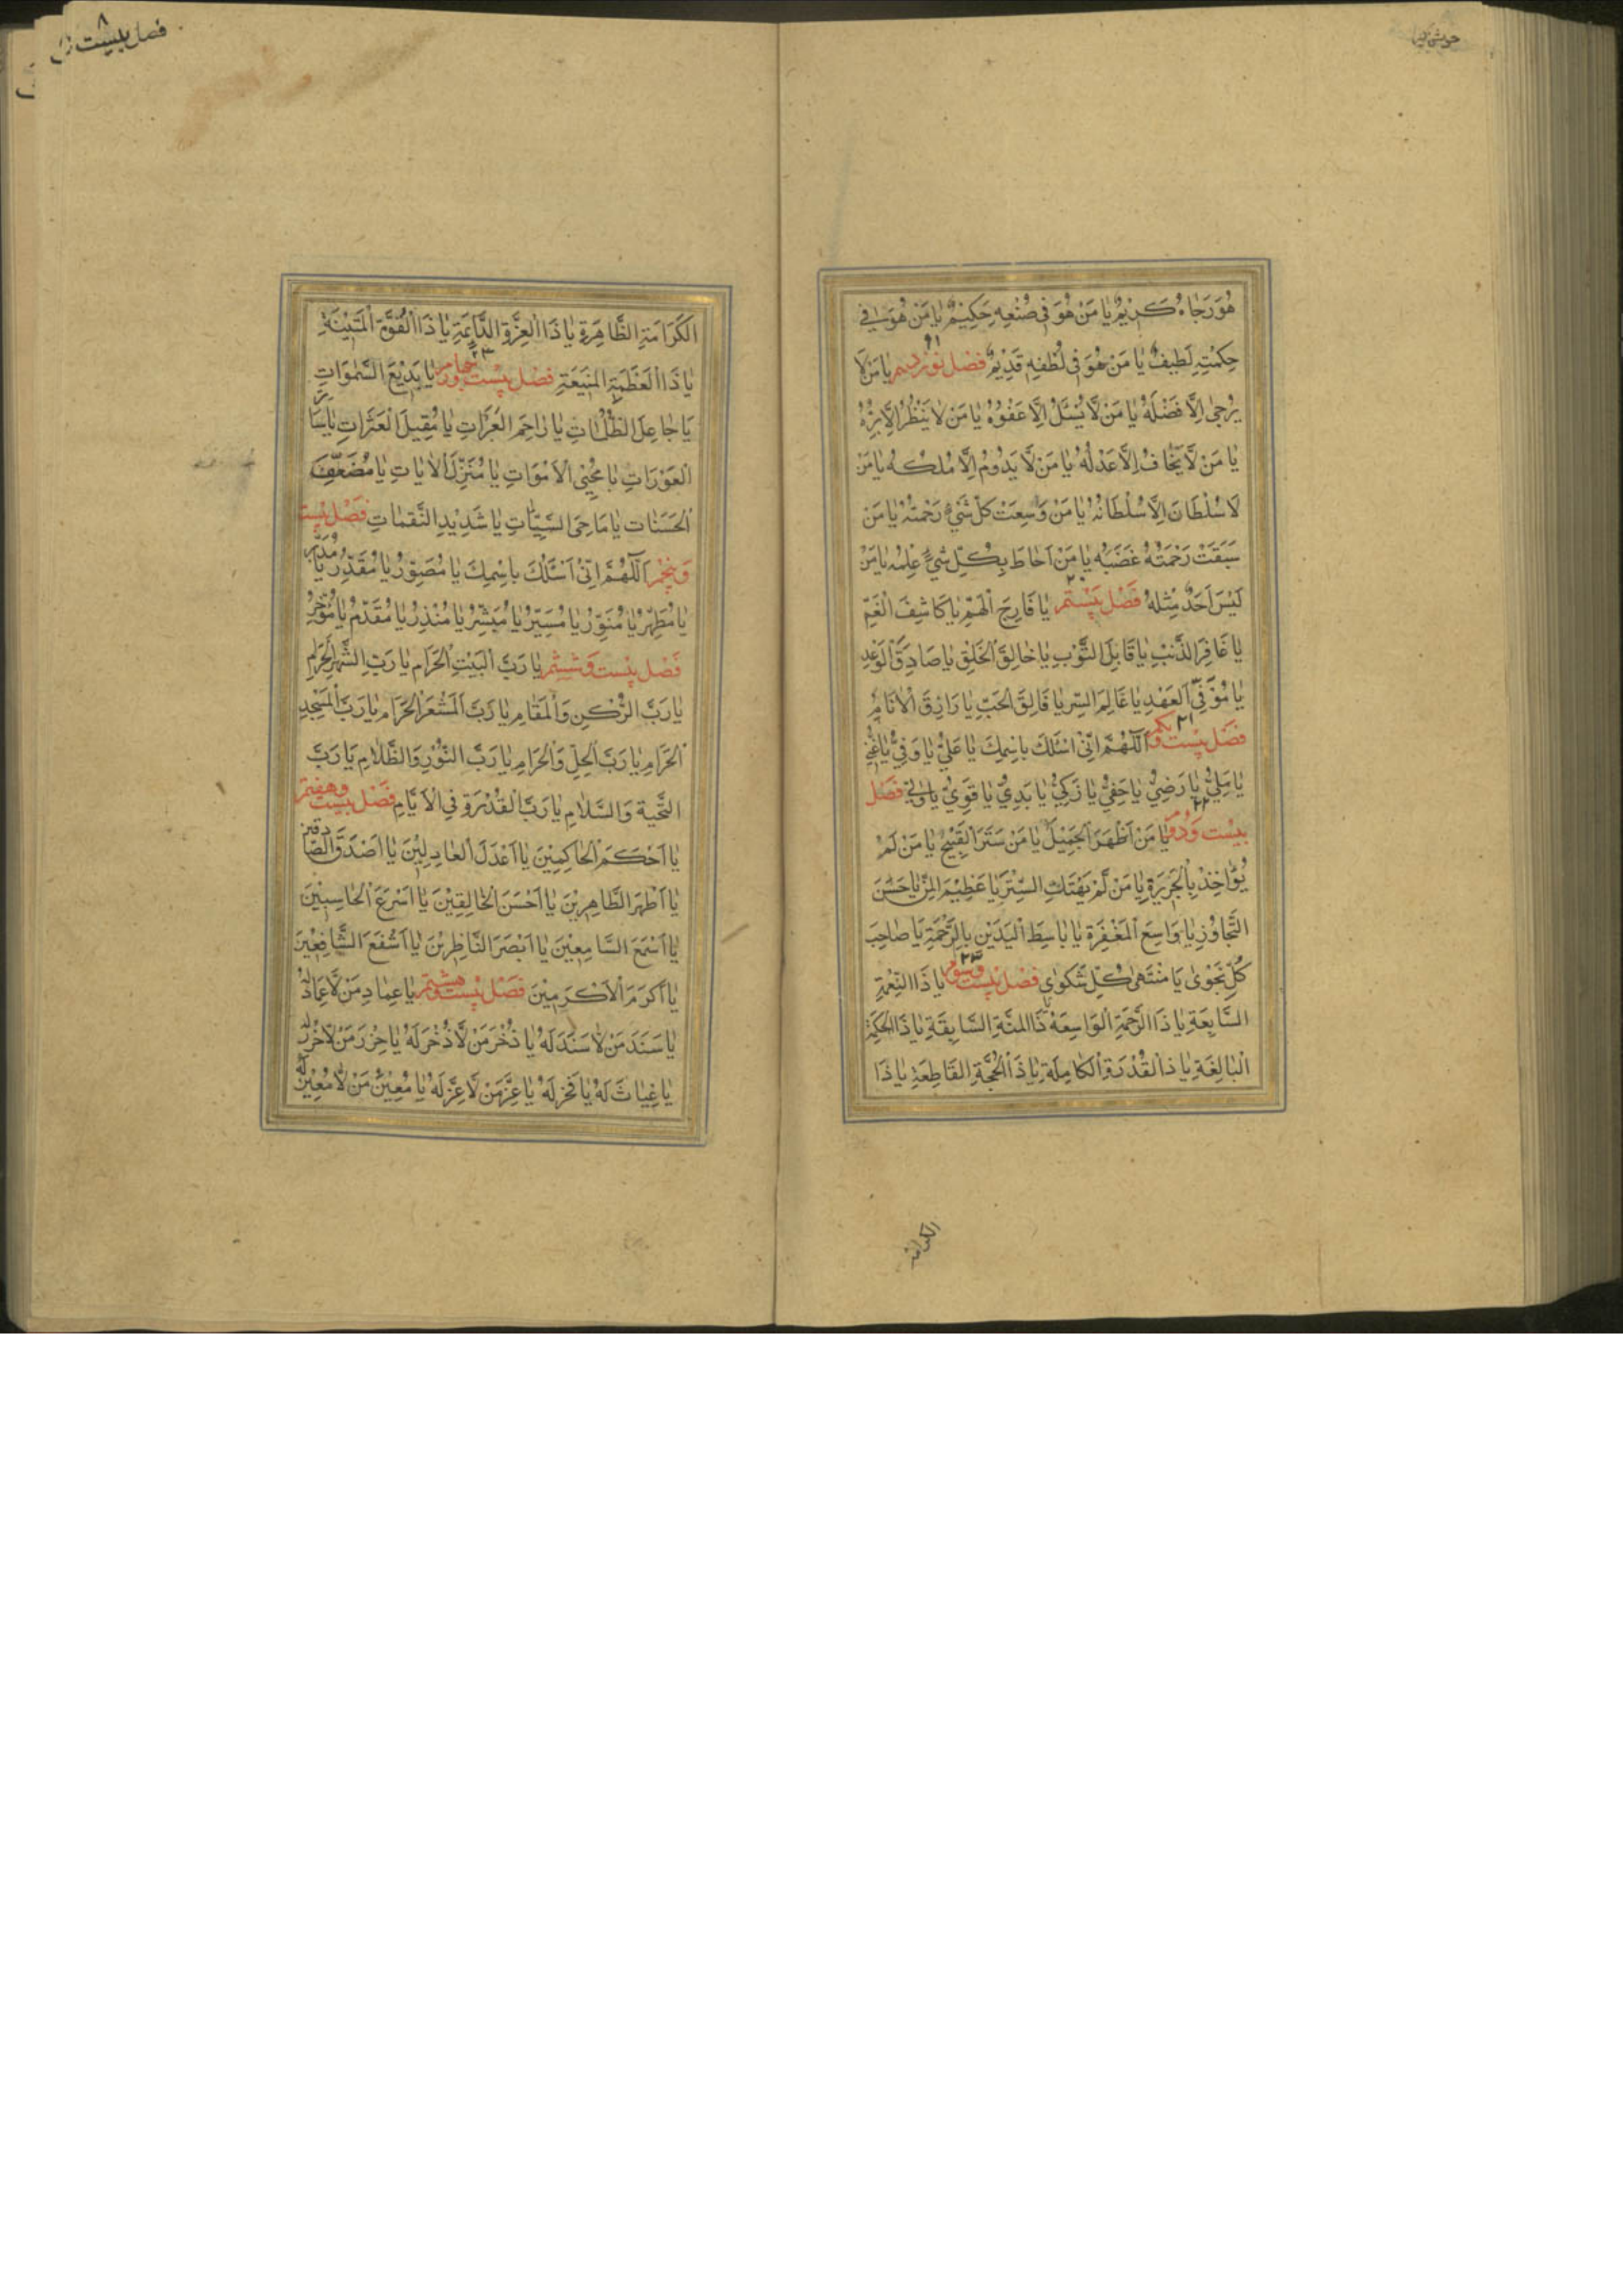 هُوَ رَجَاهُ كَرِيْمٌ يَا مَنْ هُوَ فِي صُنْعِهِ حَكِيْمٌ يَا مَنْ هُوَ فِي
حِكْمَتِهِ لَطِيفٌ يَا مَنْ هُوَ فِي لُطْفِهِ قَدِيْمٌ فصل نوزدهم يَا مَنْ لَا
يُرْجىٰ اِلَّا فَضْلُهُ يَا مَنْ لَا يُسْئَلُ اِلَّا عَفْوُهُ يَا مَنْ لَا يَنْظُرُ اِلَّا بِرُّهُ
يَا مَنْ لَا يَخَافُ اِلَّا عَدْلُهُ يَا مَنْ لَا يَدُوْمُ اِلَّا مُلْكُهُ يَا مَنْ
لَا سُلْطَانَ اِلَّا سُلْطَانُهُ يَا مَنْ وَسِعَتْ كُلَّ شَيْءٍ رَحْمَتُهُ يَا مَنْ
سَبَقَتْ رَحْمَتُهُ غَضَبُه يَا مَنْ اَحَاطَ بِكُلِّ شَيْءٍ عِلْمُه يَا مَنْ
لَيْسَ اَحَدٌ مِثْلَهُ فصل بيستم ٢٠ يَا فَارِجَ الْهَمِّ يَا كَاشِفَ الْغَمِّ
يَا غَافِرَ الذَّنْبِ يَا قَابِلَ التَّوْبِ يَا خَالِقَ الْخَلْقِ يَا صَادِقَ الْوَعْدِ
يَا مُوْفِيَ الْعَهْدِ يَا عَالِمَ السِّرِّ يَا فَالِقَ الْحَبِّ يَا رَازِقَ الْاَنَامِ
فصل بيست ويكم ٢١ اَللّٰهُمَّ اِنِّيْ اَسْئَلُكَ بِاسْمِكَ يَا عَلِيُّ يَا وَفِيُّ يَا غَنِيُّ
يَا مَلِيُّ يَا رَضِيُّ يَا حَفِيُّ يَا زَكِيُّ يَا بَدِيُّ يَا قَوِيُّ يَا وَلِيُّ فصل
بيست ودوم ٢٢ يَا مَنْ اَظْهَرَ الْجَمِيْلَ يَا مَنْ سَتَرَ الْقَبِيْحَ يَا مَنْ لَمْ
يُؤَاخِذْ بِالْجَرِيْرَةِ يَا مَنْ لَمْ يَهْتِكِ السِّتْرَ يَا عَظِيْمَ الْمَنِّ يَا حَسَنَ
التَّجَاوُزِ يَا وَاسِعَ الْمَغْفِرَةِ يَا بَاسِطَ الْيَدَيْنِ بِالرَّحْمَةِ يَا صَاحِبَ
كُلِّ نَجْوٰى يَا مُنْتَهٰى كُلِّ شَكْوٰى فصل بيست وسوم ٢٣ يَا ذَا النِّعْمَةِ
السَّابِغَةِ يَا ذَا الرَّحْمَةِ الْوَاسِعَةِ يَا ذَا الْمِنَّةِ السَّابِقَةِ يَا ذَا الْحِكْمَةِ
الْبَالِغَةِ يَا ذَا الْقُدْرَةِ الْكَامِلَةِ يَا ذَا الْحُجَّةِ الْقَاطِعَةِ يَا ذَا
الكرامة
فصل بيست
الْكَرَامَةِ الظَّاهِرَةِ يَا ذَا الْعِزَّةِ الدَّائِمَةِ يَا ذَا الْقُوَّةِ الْمَتِيْنَةِ
يَا ذَا الْعَظَمَةِ الْمَنِيْعَةِ فصل بيست وچهارم يَا بَدِيْعَ السَّمٰوَاتِ
يَا جَاعِلَ الظُّلُمَاتِ يَا رَاحِمَ الْعَبَرَاتِ يَا مُقِيْلَ الْعَثَرَاتِ يَا سَاتِرَ
الْعَوْرَاتِ يَا مُحْيِيَ الْاَمْوَاتِ يَا مُنَزِّلَ الْاٰيَاتِ يَا مُضَعِّفَ
الْحَسَنَاتِ يَا مَاحِيَ السَّيِّاٰتِ يَا شَدِيْدَ النَّقِمَاتِ فصل بيست
وپنجم اَللّٰهُمَّ اِنِّيْ اَسْئَلُكَ بِاسْمِكَ يَا مُصَوِّرُ يَا مُقَدِّرُ يَا مُدَبِّرُ
يَا مُطَهِّرُ يَا مُنَوِّرُ يَا مُيَسِّرُ يَا مُبَشِّرُ يَا مُنْذِرُ يَا مُقَدِّمُ يَا مُؤَخِّرُ
فصل بيست وششم يَا رَبَّ الْبَيْتِ الْحَرَامِ يَا رَبَّ الشَّهْرِ الْحَرَامِ
يَا رَبَّ الرُّكْنِ وَالْمَقَامِ يَا رَبَّ الْمَشْعَرِ الْحَرَامِ يَا رَبَّ الْمَسْجِدِ
الْحَرَامِ يَا رَبَّ الْحِلِّ وَالْحَرَامِ يَا رَبَّ النُّوْرِ وَالظَّلَامِ يَا رَبَّ
التَّحِيَّةِ وَالسَّلَامِ يَا رَبَّ الْقُدْرَةِ فِي الْاَيَّامِ فصل بيست وهفتم
يَا اَحْكَمَ الْحَاكِمِيْنَ يَا اَعْدَلَ الْعَادِلِيْنَ يَا اَصْدَقَ الصَّادِقِيْنَ
يَا اَطْهَرَ الطَّاهِرِيْنَ يَا اَحْسَنَ الْخَالِقِيْنَ يَا اَسْرَعَ الْحَاسِبِيْنَ
يَا اَسْمَعَ السَّامِعِيْنَ يَا اَبْصَرَ النَّاظِرِيْنَ يَا اَشْفَعَ الشَّافِعِيْنَ
يَا اَكْرَمَ الْاَكْرَمِيْنَ فصل بيست وهشتم يَا عِمَادَ مَنْ لَا عِمَادَ لَهُ
يَا سَنَدَ مَنْ لَا سَنَدَ لَهُ يَا ذُخْرَ مَنْ لَا ذُخْرَ لَهُ يَا حِرْزَ مَنْ لَا حِرْزَ لَهُ
يَا غِيَاثَ لَهُ يَا فَخْرَ لَهُ يَا عِزَّ مَنْ لَا عِزَّ لَهُ يَا مُعِيْنَ مَنْ لَا مُعِيْنَ لَهُ